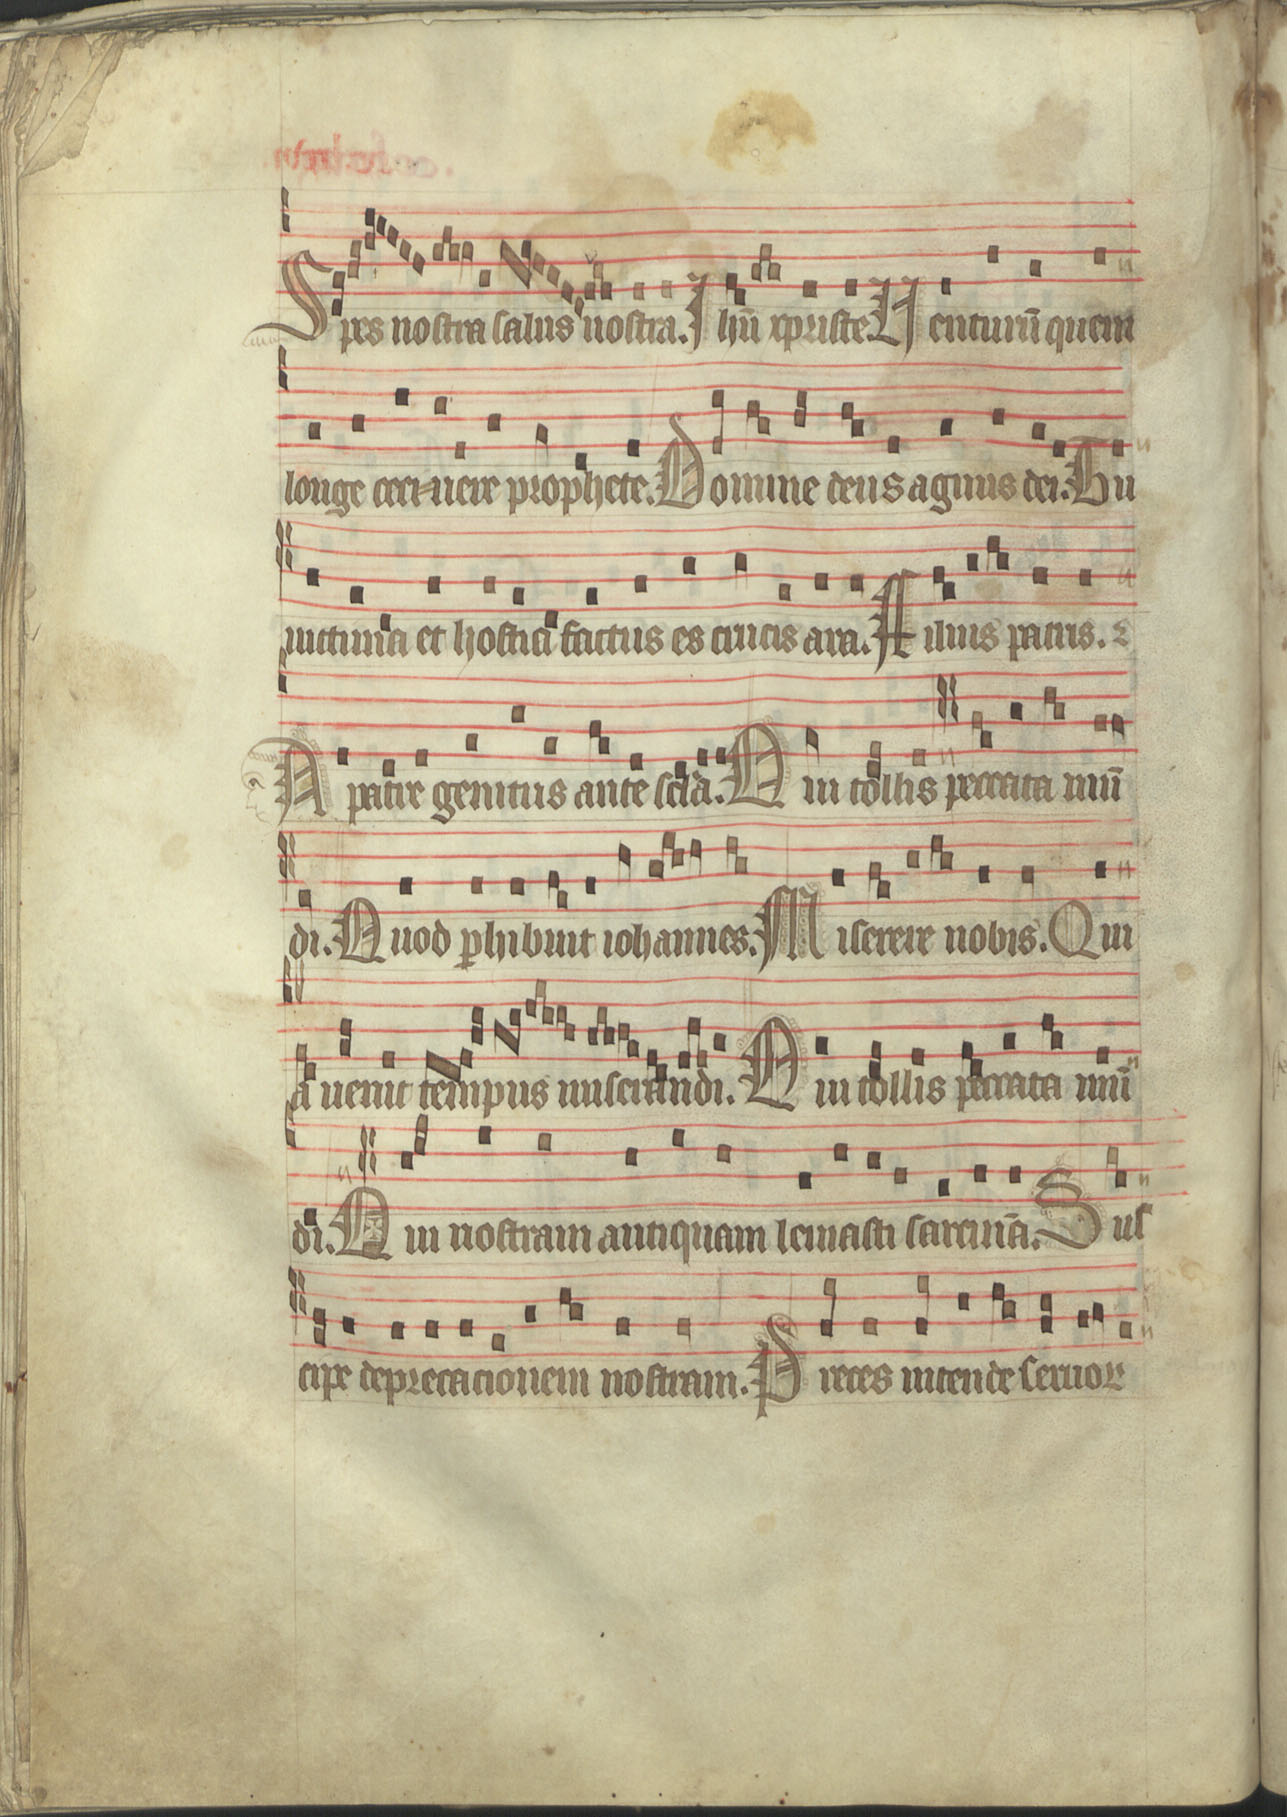 Spes nostra salus nostra. Ihū xpriste. Uenturū quem
longe cernere prophete. Domine deus agnus dei. Tu
uictima et hostia factus es crucis ara. Filius patris.
A patre genitus ante scl̄a. Qui tollis peccata mū
di. Quod ꝑhibuit iohannes. Miserere nobis. Qui
a uenit tempus miserandi. Qui tollis peccata mū
di. Qui nostram antiquam leuiasti sarcinā. Sus
cipe deprecationem nostram. Preces intende seruoꝝ